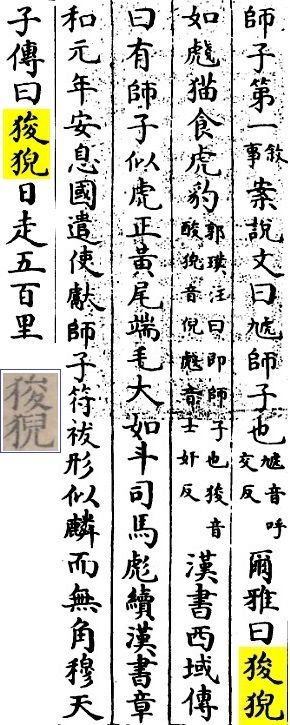 師子第一敘事案說文曰虓師子也虓音呼交反爾雅曰狻猊
如虦猫食虎豹郭璞注曰即師子也狻音酸猊音倪虦音士奸反漢書西域傳
曰有師子似虎正黃尾端毛大如斗司馬彪續漢書章
和元年安息國遣使獻師子符祓形似麟而無角穆天
子傳曰狻猊日走五百里
狻猊